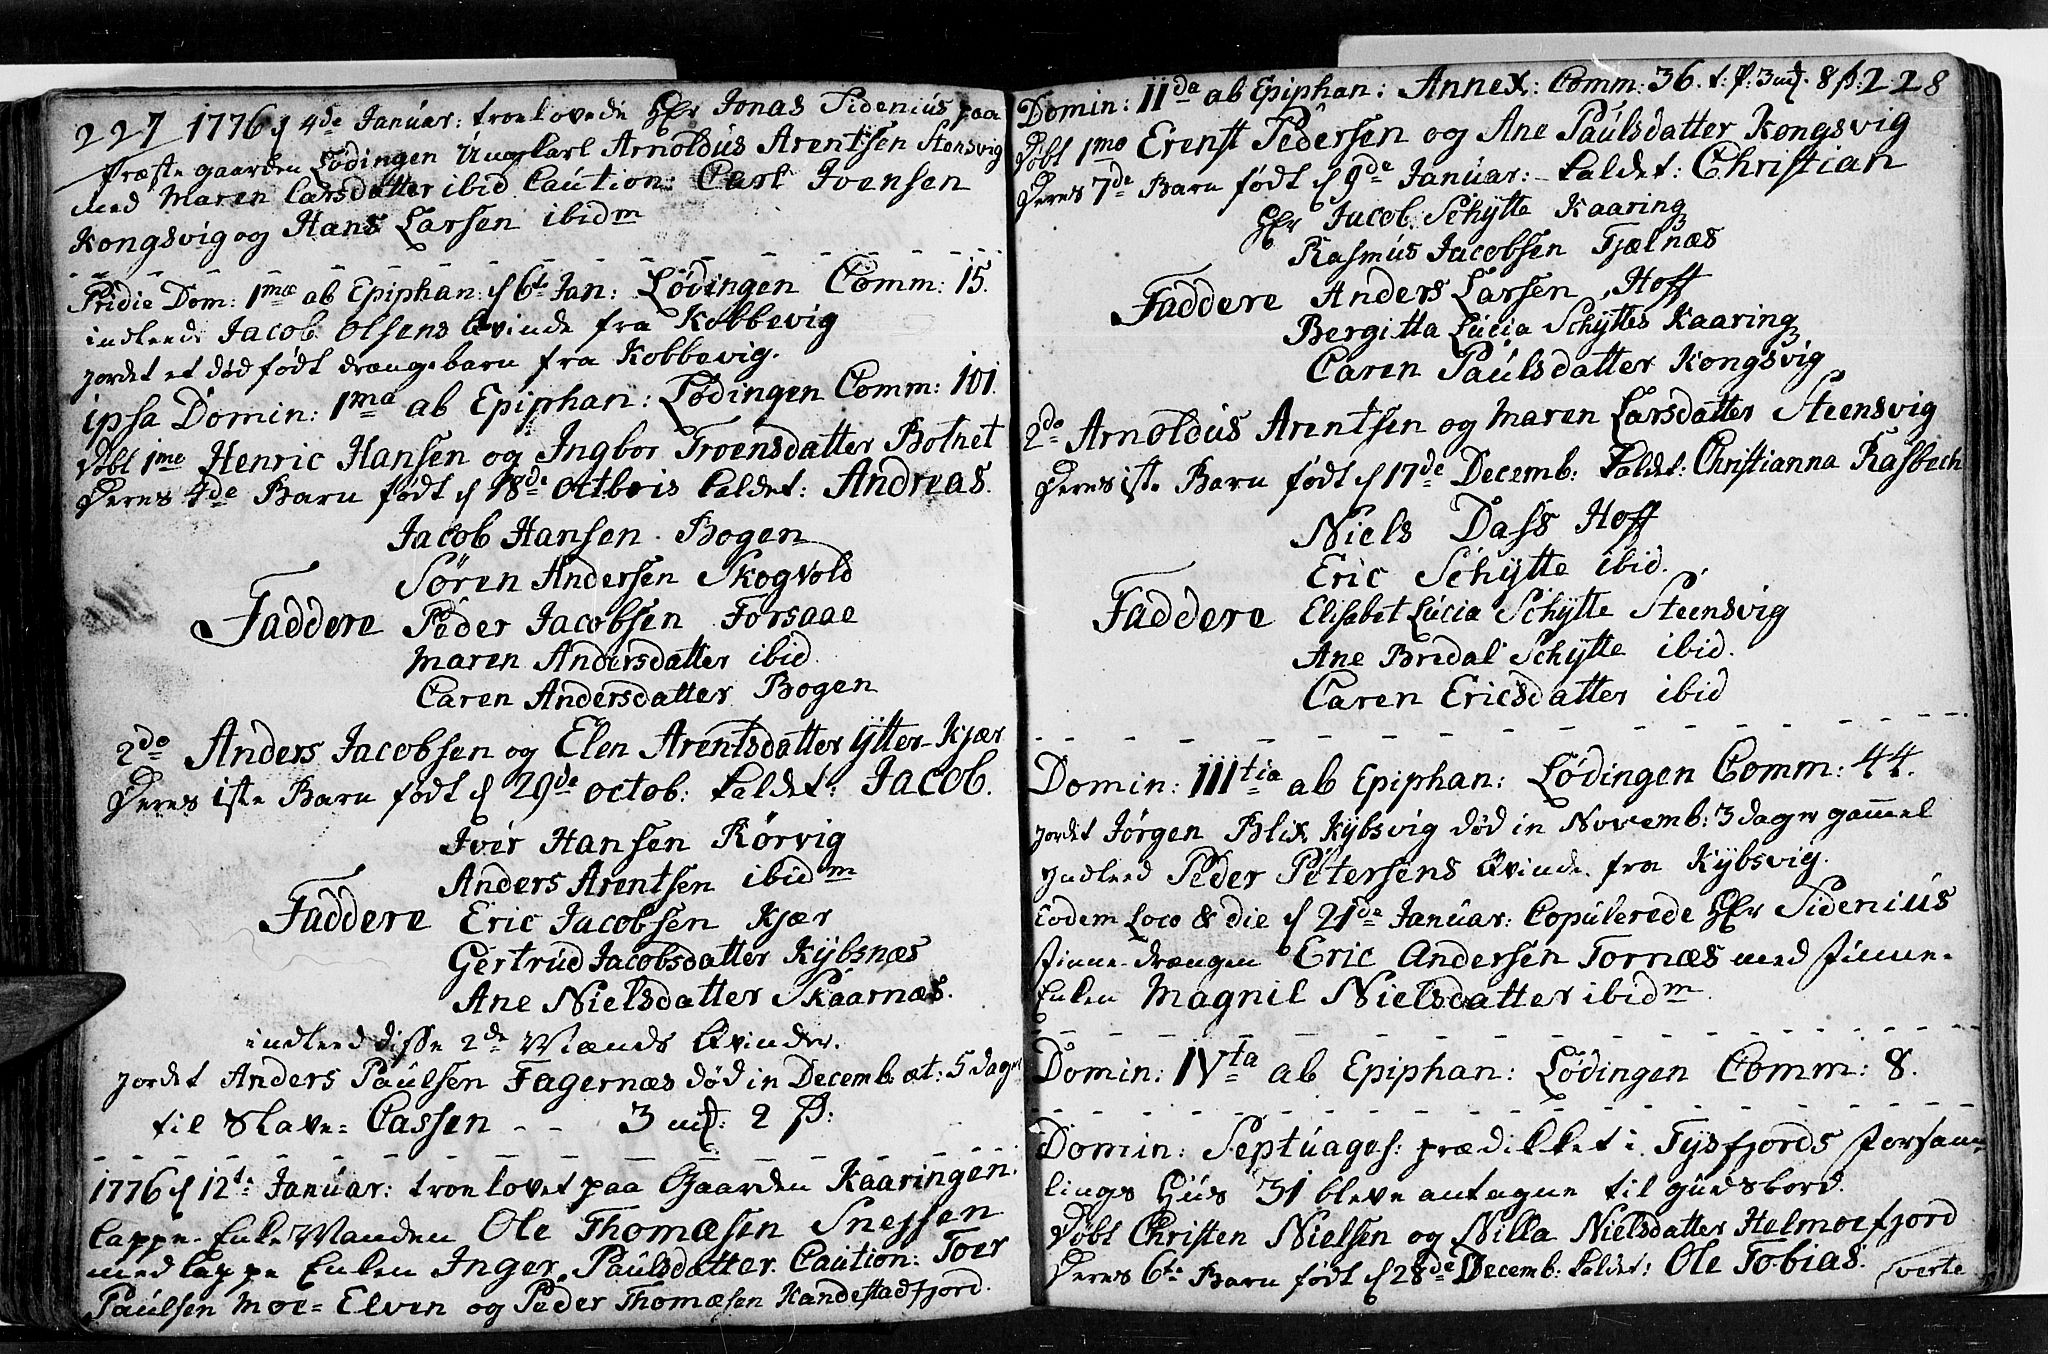 227 1776 d 4de Januar: troelovede Hr Jonas Sidenius paa
Præste gaarden Lødingen Ungkarl Arnoldus Arentsen Stensvig
med Maren Larsdatter ibid Caution: Carl Ivensen
Kongsvig og Hans Larsen ibidm
Pridie Dom: 1mæ ab Epiphan: d 6t Jan: Lødingen Comm: 15.
indleed: Jacob Olsens Qvinde fra Kobbevig
jordet et død født drænge barn fra Kobbevig.
ipsa Domin: 1ma ab Epiphan: Lødingen Comm: 101.
Døbt 1mo Henric Hansen og Ingbor Troensdatter Botnet
Deres 4de Barn født d 18de Octbris kaldet: Andreas.
Jacob Hansen Bogen
Søren Andersen Skogvold
Faddere Peder Jacobsen Forsaae
Maren Andersdatter ibid.
Caren Andersdatter Bogen
2do Anders Jacobsen og Elen Arentsdatter Ytter-Kjær
Deres 1ste Barn født d 29de Octob: kaldet: Jacob.
Iver Hansen Rørvig
Anders Arentsen ibidm
Faddere Eric Jacobsen Kjær
Gertrud Jacobsdatter Kybsnæs
Ane Nielsdatter Skaarnæs.
indleed disse 2de Mænds Qvinder.
jordet Anders Paulsen Fagernæs død in Decemb: æt: 5 dager
til Slave= Cassen - - 3 mk: 2 s:
1776 d 12t: Januar: troelovet paa Gaarden Kaaringen.
Lappe-Enke Manden Ole Thomæsen Snejsen
med Lappe Enken Inger Paulsdatter. Caution: Toer
Paulsen Moe= Elven og Peder Thomæsen Kandestadfjord.
Domin: IIda ab Epiphan: Annex: Comm: 36. t: p: 3 mk: 8 s: 228
Døbt 1mo Erenst Pedersen og Ane Paulsdatter Kongsvig
Deres 7de Barn født d 9de Januar: kaldet: Christian
Hr Jacob Schytte Kaaring
Rasmus Jacobsen Fjælnæs
Faddere Anders Larsen, Hoff
Bergitta Lucia Schyttes Kaaring
Caren Paulsdatter Kongsvig
2do Arnoldus Arentsen og Maren Larsdatter Steensvig
Deres 1ste Barn født d 17de Decemb: kaldet: Christianna Rasbech
Niels Dass Hoff
Eric Schytte ibid.
Faddere Elisabet Lucia Schytte Steensvig
Ane Bredal Schytte ibid.
Caren Ericsdatter ibid
Domin: IIItia ab Epiphan: Lødingen Comm: 44.
jordet Jørgen Blix Kybsvig død in Novemb: 3 dager gamel
Indleed Peder Petersens Qvinde fra Kybsvig.
Eodem Loco & die d 21de Januar: Copulerede Hr Sidenius
Finne-drængen Eric Andersen Tornæs med Finne-
Enken Magnil Nielsdatter ibidm.
Domin: IVta ab Epiphan: Lødingen Comm: 8.
Domin: Septuages: prædikket i Tysfjords Forsam-
lings Huus 31 bleve antagne til gudsbord.
Døbt Christen Nielsen og Nilla Nielsdatter Helmoefjord
Deres 6te Barn født d 28de Decemb: kaldet: Ole Tobias.
verte